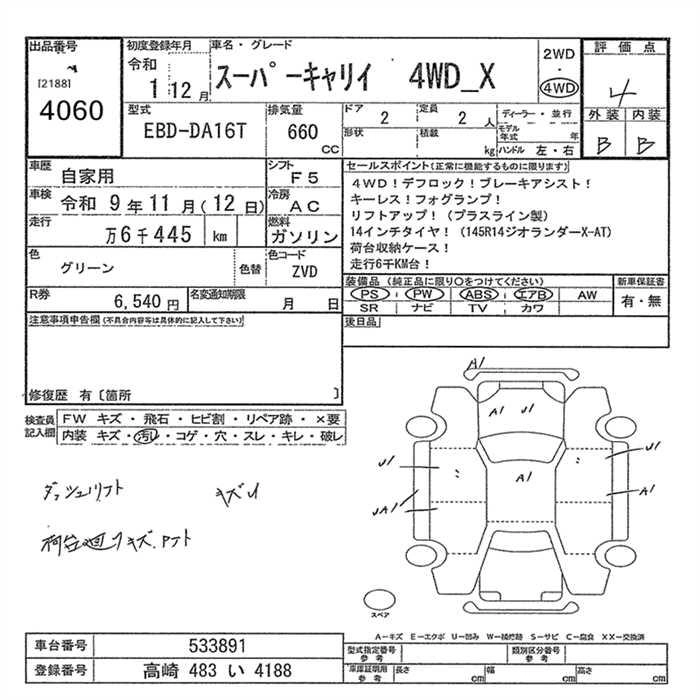 出品番号
[2188]
4060
初度登録年月
令和
1年12月
車名・グレード
スーパーキャリイ 4WD_X
2WD
・
4WD
評価点
4
外装 内装
B B
型式
EBD-DA16T
排気量
660
cc
ドア
2
定員
2 人
形状
積載
kg
ディーラー・並行
モデル年式 年
ハンドル 左・右
車歴
自家用
シフト
F5
車検
令和 9年11月(12日)
冷房
AC
走行
万6千445 km
燃料
ガソリン
色
グリーン
色替
色コード
ZVD
R券
6,540円
名変通知期限
月 日
セールスポイント(正常に機能するものに限ります)
4WD!デフロック!ブレーキアシスト!
キーレス!フォグランプ!
リフトアップ!(プラスライン製)
14インチタイヤ!(145R14ジオランダーX-AT)
荷台収納ケース!
走行6千KM台!
装備品(純正品に限り〇をつけてください)
PS PW ABS エアB AW
SR ナビ TV カワ
新車保証書
有・無
後日品
注意事項申告欄(不具合内容等は具体的に記入して下さい)
修復歴 有〔箇所 〕
検査員
記入欄
FW キズ・飛石・ヒビ割・リペア跡・×要
内装 キズ・汚レ・コゲ・穴・スレ・キレ・破レ
ダッシュリフト キズU
荷台廻リキズ.アト
A1
A1 U1
U1
U1
A1
UA1
A1
スペア
A-キズ E-エクボ U-凹み W-補修跡 S-サビ C-腐食 XX-交換済
車台番号 533891
登録番号 高崎 483 い 4188
型式指定番号
参考
類別区分番号
参考
車庫証明用
参考
長さ cm
幅 cm
高さ cm